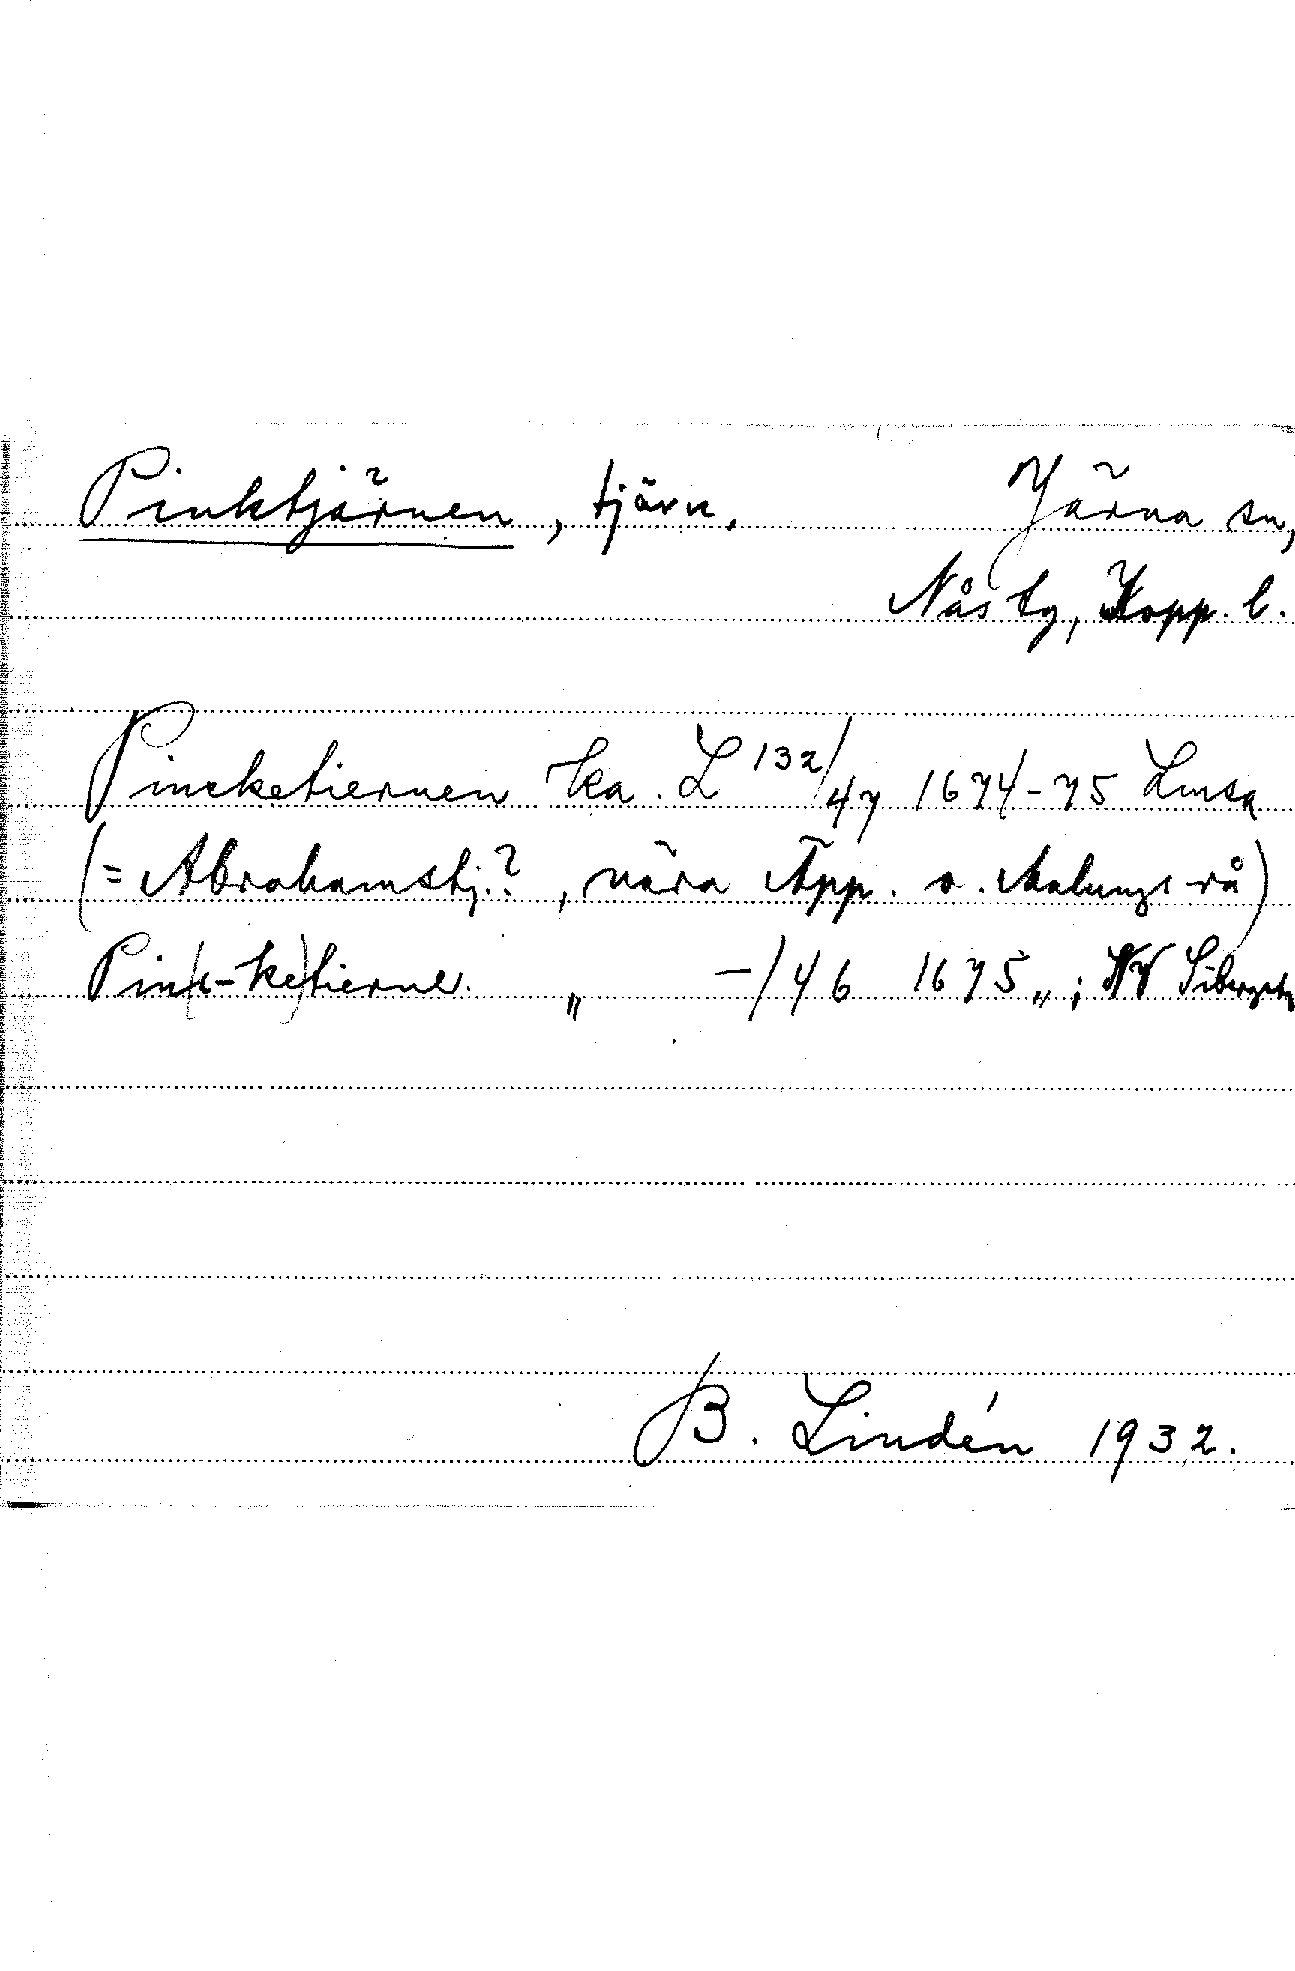 Pinktjärnen, tjärn. Järna sn,
Nås tg, Kopp. l.
Pincketiernen ka. L 132/47 1674-75 Lmsa
(= Abrahamstj.?, nära Äpp. o. Malungs rå)
Pin(c-ke)tierne. „ -/46 1675 „ ; NV
B. Lindén 1932.